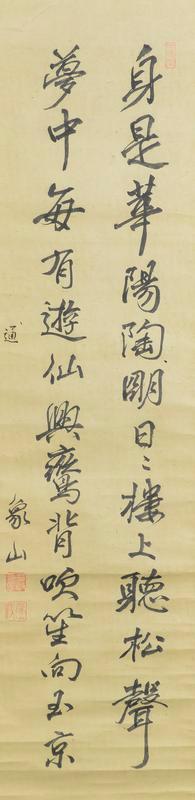 身是華陽陶朙日〻樓上聽松聲
夢中每有遊仙興鸞背吹笙向玉京
通
象山